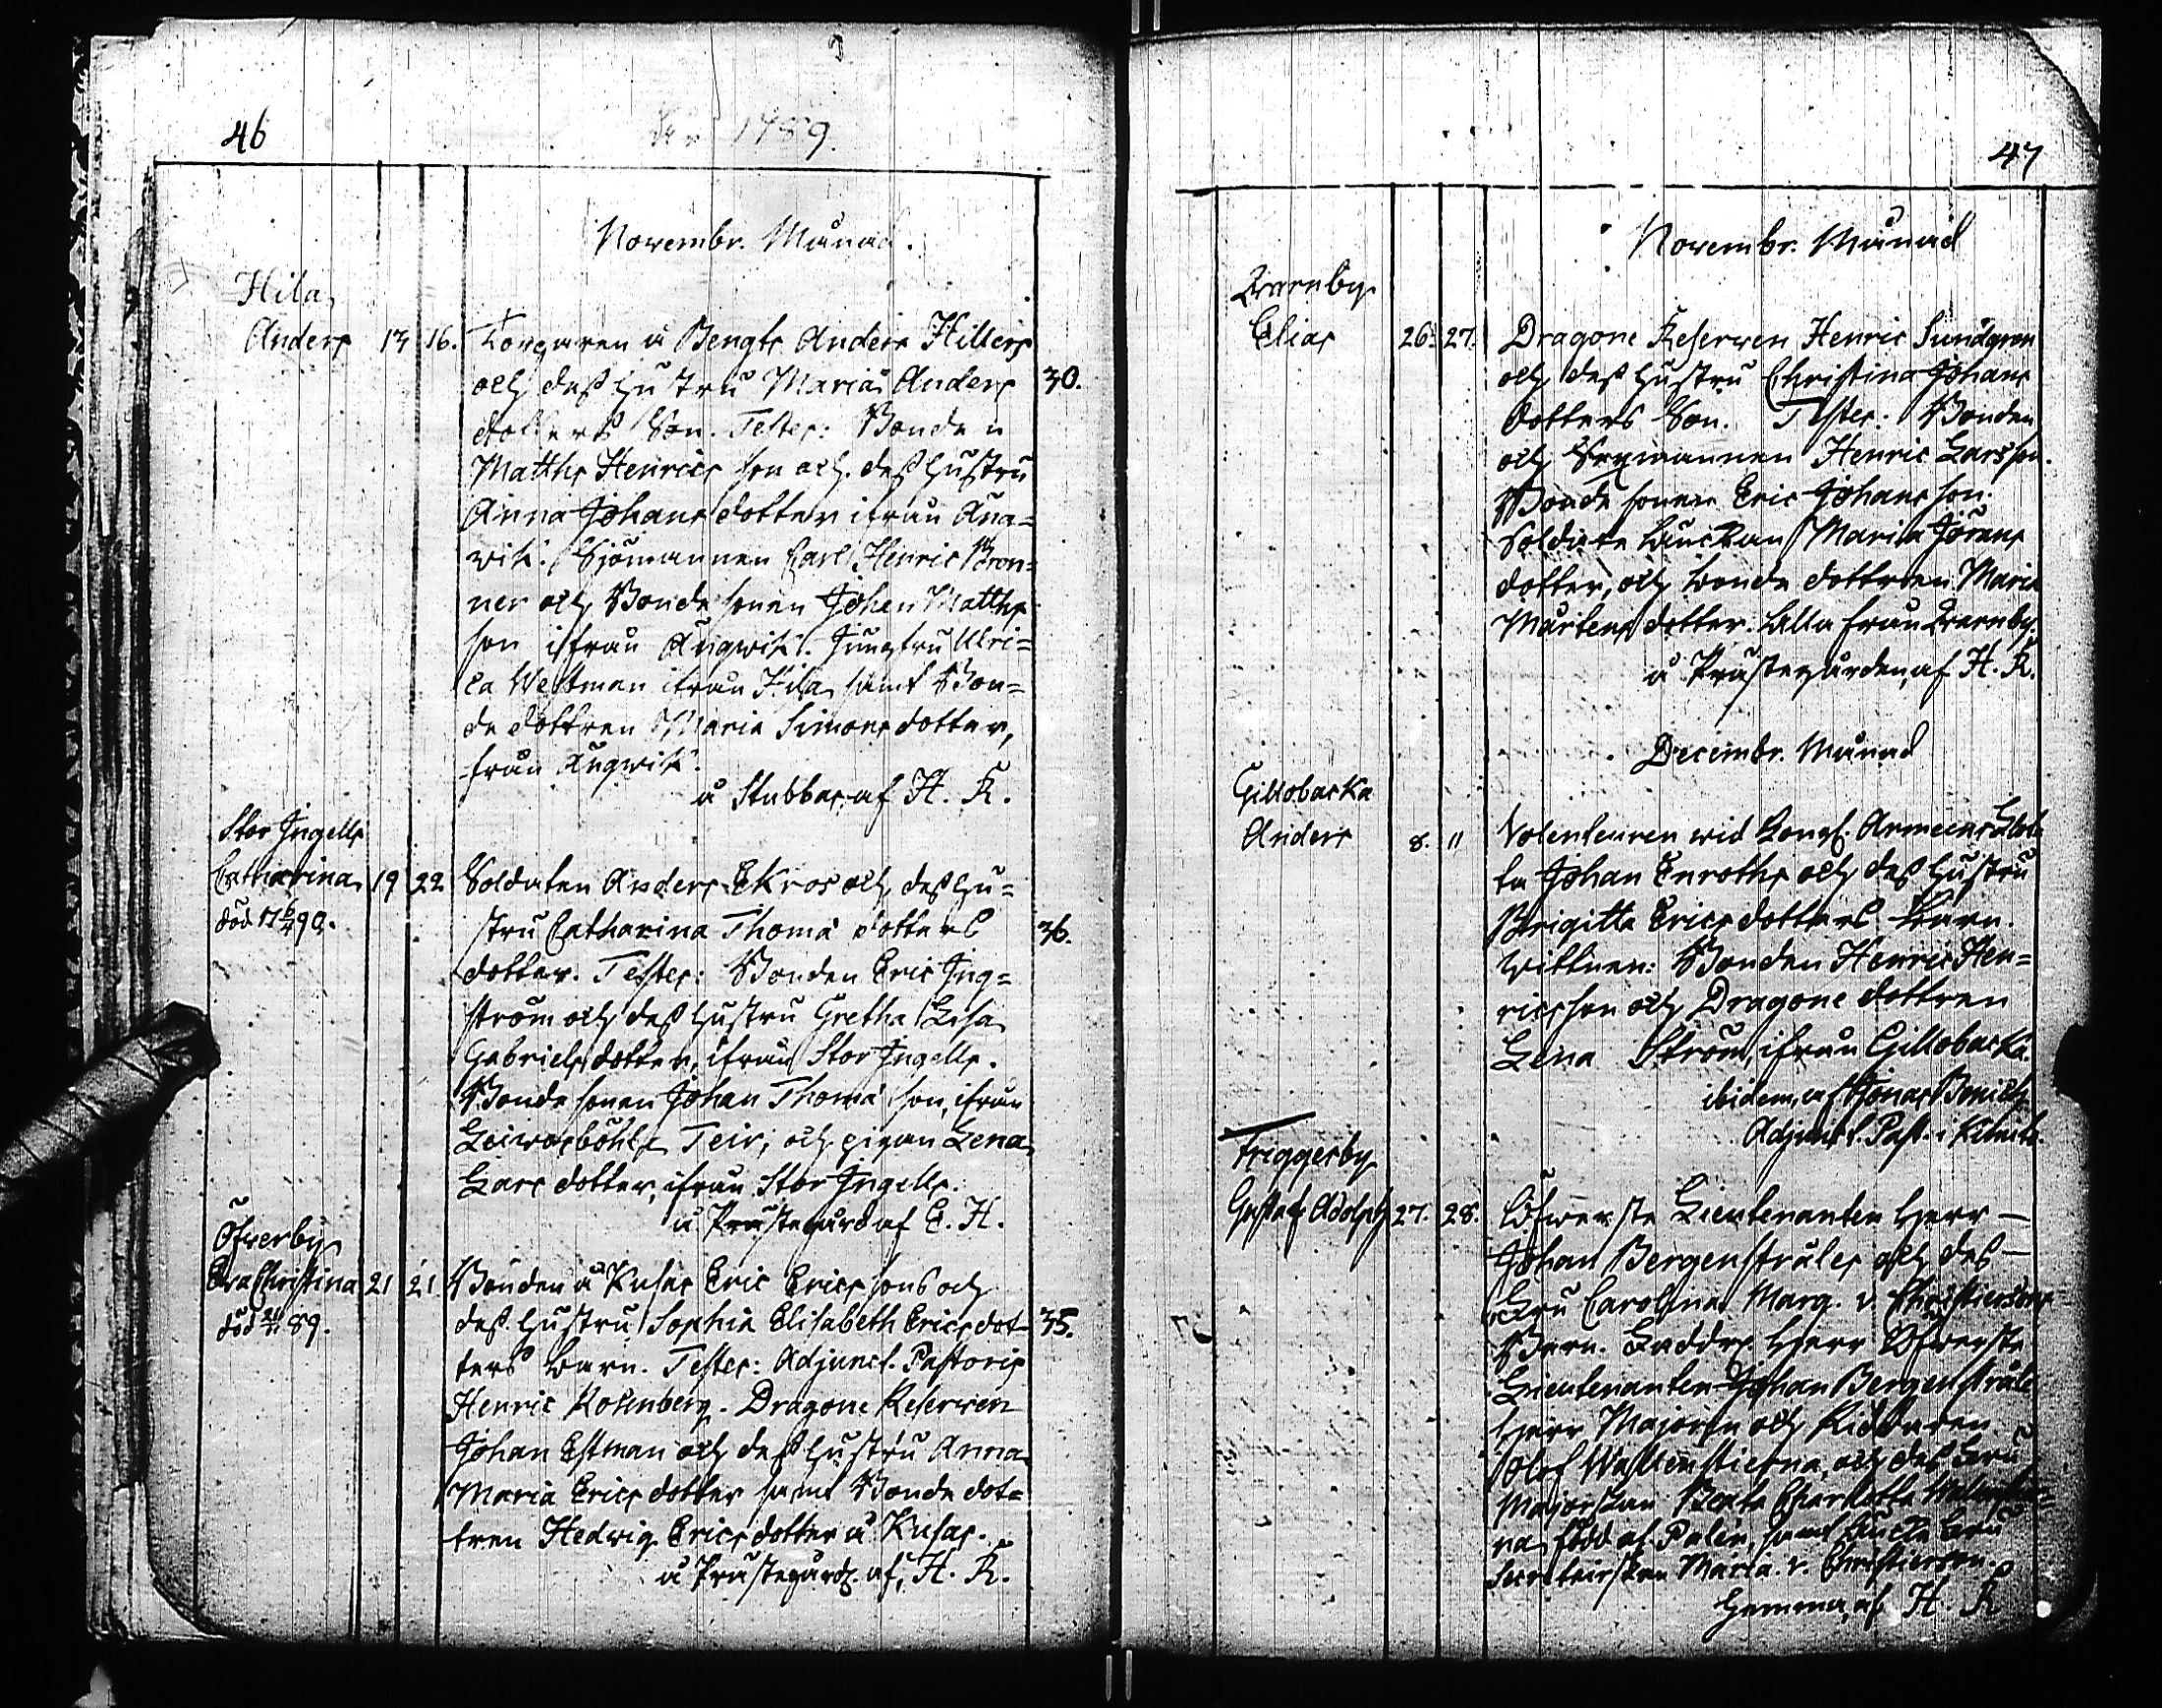 46
År 1789.
Novembr. Månad.
Hila
Anders 13 16. Torparen å Bengts Anders Hillers
och dess hustru Maria Anders 30.
dotters Son. Testes: Bonden
Matths Henrics son och dess hustru
Anna Johans dotter ifrån Ång=
wik. Sjömannen Carl Henric Bron=
ner och Bonde sonen Johan Matths
son ifrån Ångwik. Jungfru Ulri=
ca Westman ifrån Hila samt Bon=
de dottren Maria Simons dotter,
från Ångwik.
å Stubbas, af H. R.
Stor Ingells
Catharina 19 22 Soldaten Anders Ekros och dess hu=
död 17 90. stru Catharina Thomæ dotters 36.
dotter. Testes: Bonden Eric Ing=
ström och dess hustru Gretha Lisa
Gabriels dotter, ifrån Stor Ingells.
Bonde sonen Johan Thomæ son, ifrån
Teir, och pigan Lena
Lars dotter, ifrån Stor Ingells.
å Prästegård af E. H.
Öfwerby
Eva Christina 21 21 Bonden å Kusas Eric Erics sons och
död 89. dess hustru Sophia Elisabeth Erics dot= 35.
ters barn. Testes: Adjunct. Pastoris
Henric Rosenberg. Dragone Reserven
Johan Estman och dess hustru Anna
Maria Erics dotter samt Bonde dot=
tren Hedwig Erics dotter å Kusas.
å Prästegård. af, H. R.
47
Novembr. Månad
Qvarnby
Elias 26. 27. Dragone Reserven Henric Sundgren
och dess hustru Christina Johans
dotters Son. Testes: Bonden
och Henric Larsson.
Bonde sonen Eric Johans son.
Soldate Maria Jörans
dotter, och bonde dottren Maria
Mårtens dotter. alla från Qvarnby.
å Prästegården, af H. R.
Decembr. Månad
Gillobacka
Anders 8. 11 Volenteuren wid Kongl. Armeens Flot
ta Johan Enroths och dess hustru
Brigitta Erics dotters barn.
Wittnen: Bonden Henric Hen=
rics son och Dragone dottren
Lena Ström, ifrån Gillobacka.
ibidem, af Jonas
Adjunct. Past. i
Friggesby
Gustaf Adolph 27. 28. Öfwerste Lieutenanten Herr
Johan Bergenstråles och des
Fru Carolina Marg. v. Christiersons
Barn. Faddrs. Herr Öfwerste
Lieutenanten Johan Bergenstråle
Herr Majoren och Riddaren
Olof Wallenstierna, och dess Fru
Majorskan Beata Charlotta Wallenstier=
na född af Palén, samt Fru
Secreteirskan Maria v. Christierson.
Hemma, af H. R